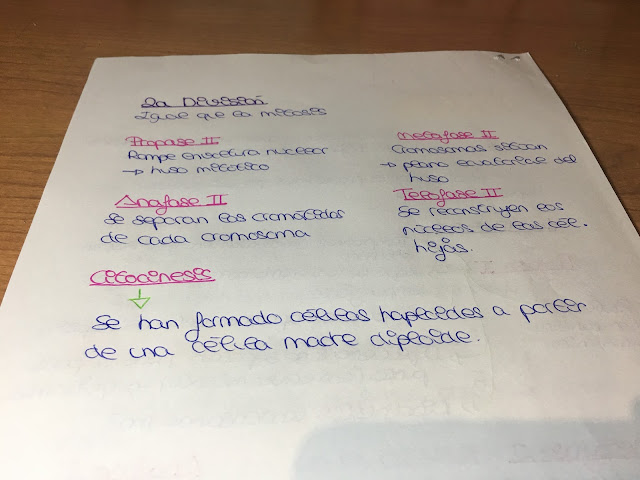 2a División
Igual que la mitosis
Profase II
Rompe envoltura nuclear
→ huso mitótico
Metafase II
Cromosomas sitúan
→ plano ecuatorial del
huso
Anafase II
Se separan las cromátidas
de cada cromosoma
Telofase II
Se reconstruyen los
núcleos de las cél.
hijas.
Citocinesis
Se han formado células haploides a partir
de una célula madre diploide.